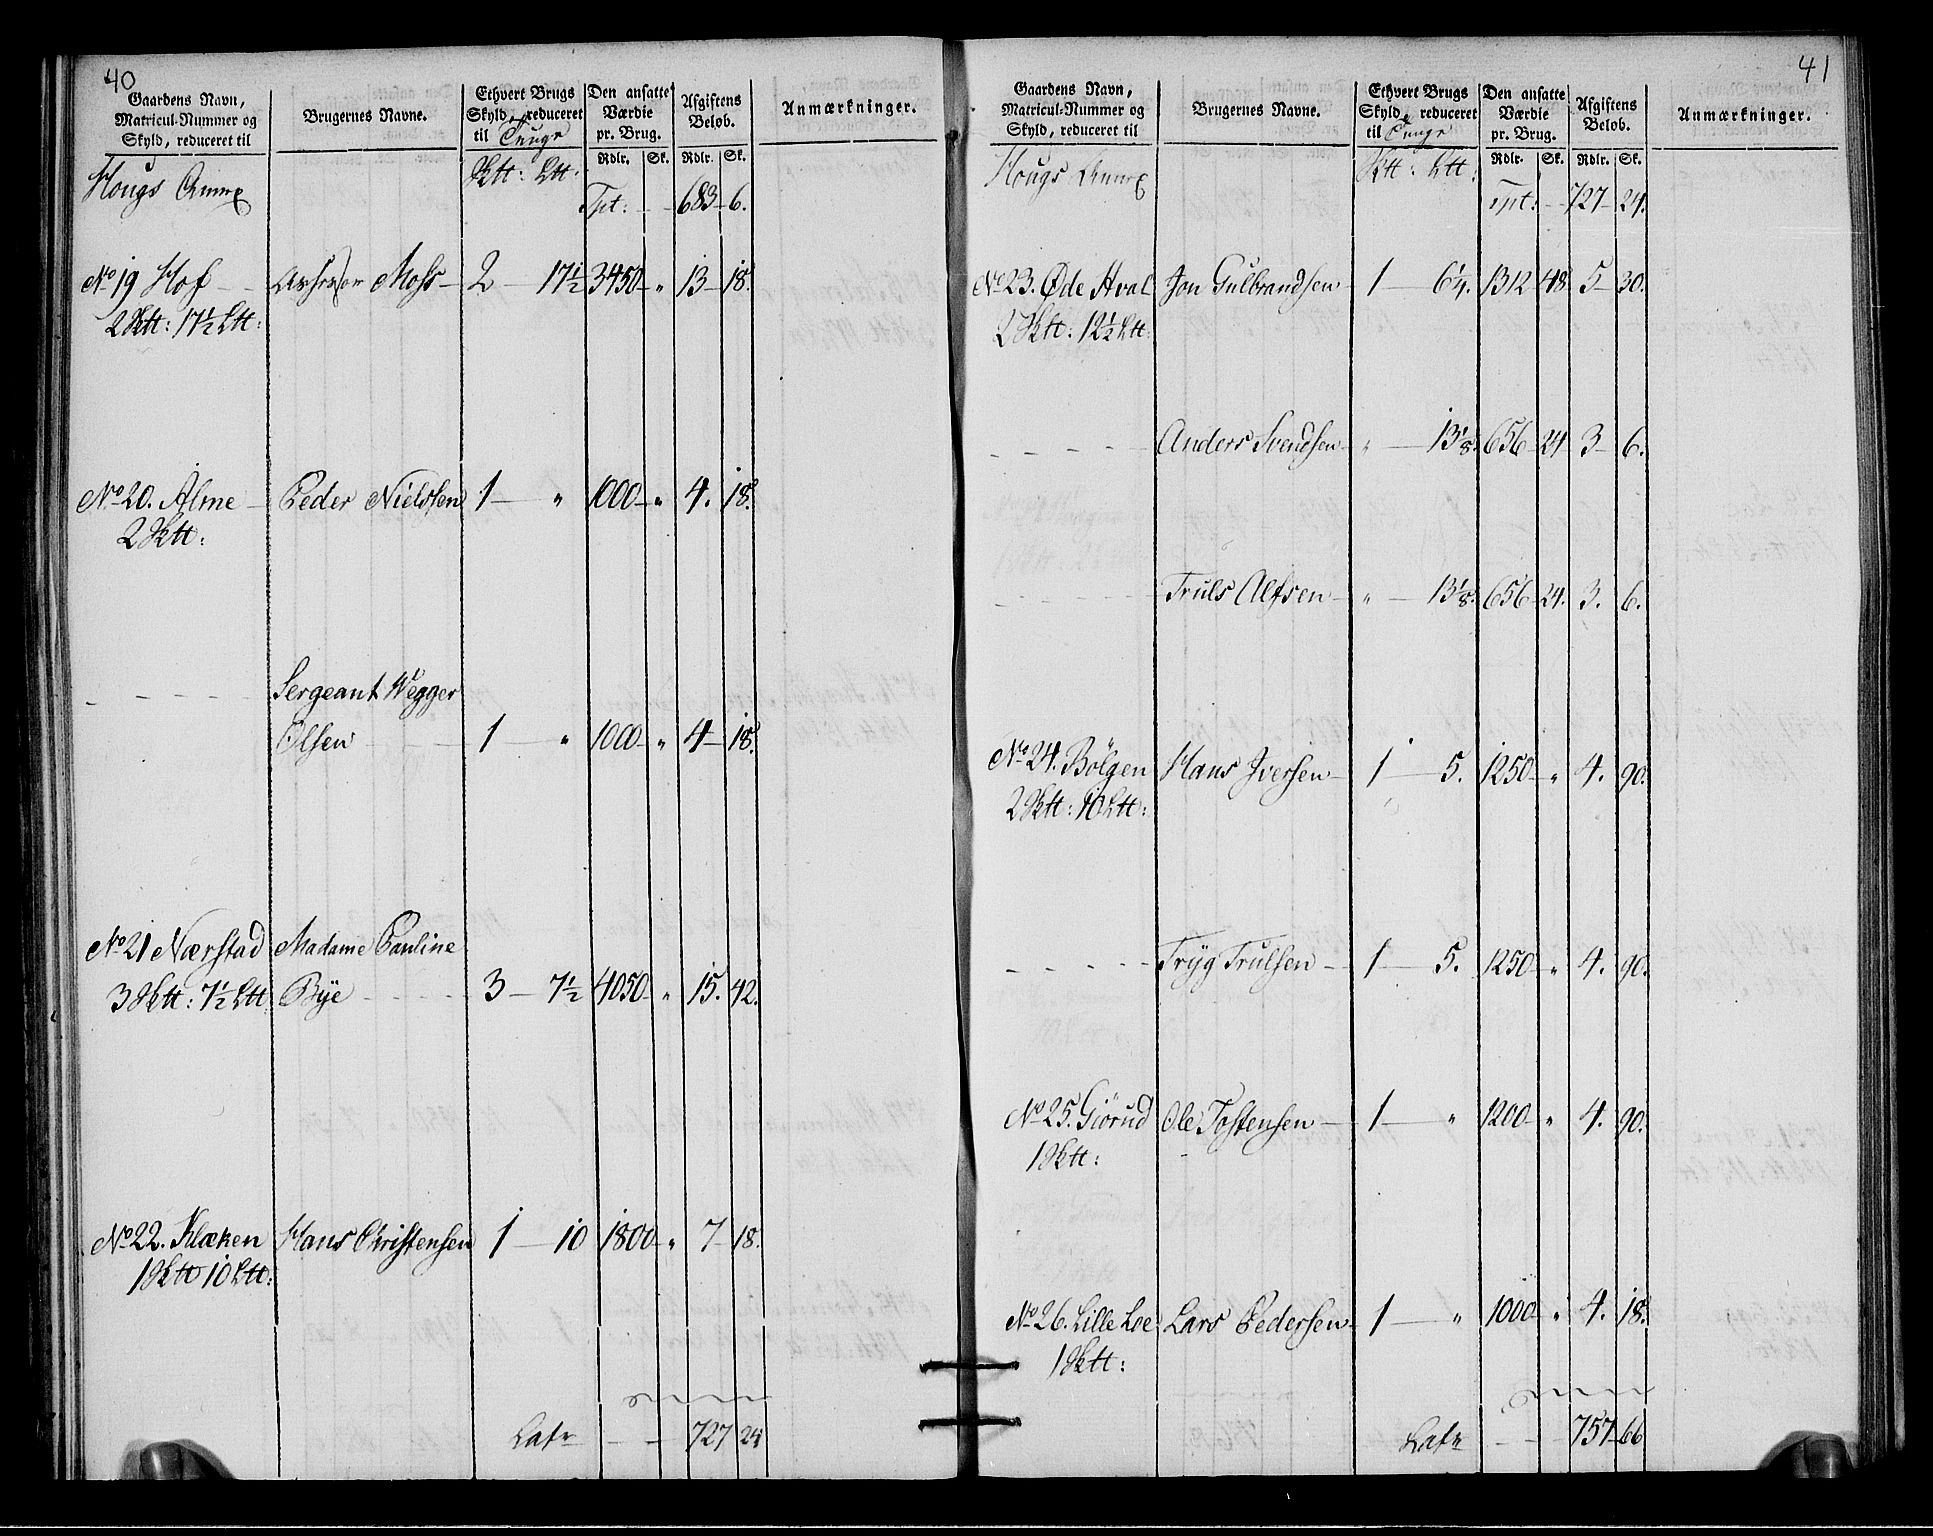 40
Gaardens Navn,
Matricul-Nummer og
Skyld, reduceret til
Brugernes Navne.
Ethvert Brugs
Skyld, reduceret
til Tunge
Den ansatte
Værdie
pr. Brug.
Afgiftens
Beløb.
Anmærkninger.
Rdlr. Sk. Rdlr. Sk.
Hougs Annex
Tpt: 683 6.
No 19 Hof Assessor Moss 2 17½ 3450 " 13 18.
2 17½
No 20. Alme Peder Nielssen 1 " 1000 " 4. 18.
2
Sergeant Wegger
Olsen 1 " 1000 " 4 18.
No 21 Nærstad Madame Pauline
3 7½ Bÿe 3 7½ 4050 " 15. 42.
No 22. Klæken Hans Christensen 1 10 1800 " 7 18.
1 10
Latr 727 24
41
Gaardens Navn,
Matricul-Nummer og
Skyld, reduceret til
Brugernes Navne.
Ethvert Brugs
Skyld, reduceret
til Tunge
Den ansatte
Værdie
pr. Brug.
Afgiftens
Beløb.
Anmærkninger.
Rdlr. Sk. Rdlr. Sk.
Hougs Annex
Tpt: 727 24.
No 23. Øde Hval Jon Gulbrandsen 1 6¼. 1312 48 5 30.
2 12½
Anders Svendsen " 13⅛. 656 24 3 6.
Truls Alfsen " 13⅛. 656 24. 3. 6.
No 24. Bölgen Hans Iversen 1 5. 1250 " 4. 90.
2 10
Tryg Trulsen 1 5. 1250 " 4. 90.
No 25. Giörud Ole Tostensen 1 " 1200 " 4. 90.
1
No 26. Lille Loe Lars Pedersen 1 " 1000 " 4. 18.
1
Latr 757 66